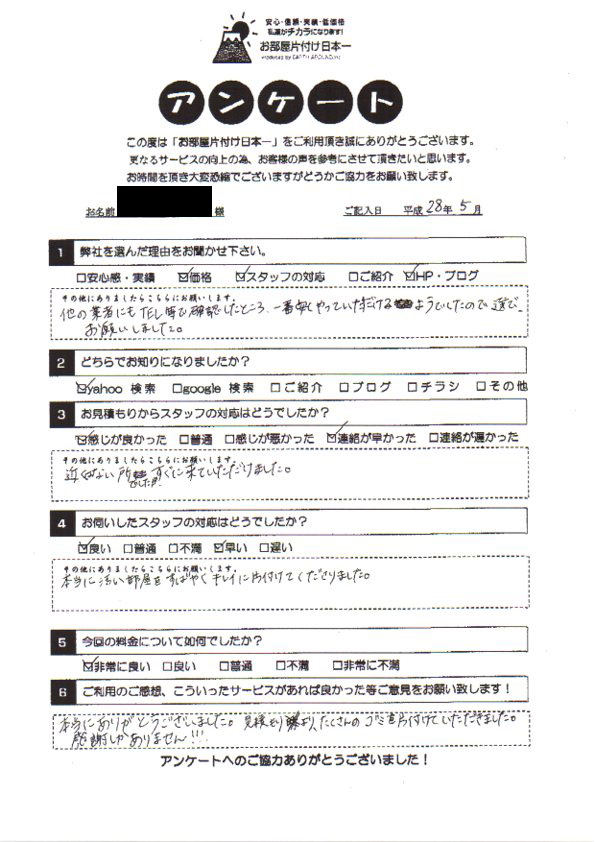 安心・信頼・実績・低価格
私達がチカラになります!
お部屋片付け日本一
Produced by EARTH AROUND,inc
アンケート
この度は「お部屋片付け日本一」をご利用頂き誠にありがとうございます。
更なるサービスの向上の為、お客様の声を参考にさせて頂きたいと思います。
お時間を頂き大変恐縮でございますがどうかご協力をお願い致します。
お名前 様 ご記入日 平成 28年 5月
1 弊社を選んだ理由をお聞かせ下さい。
□安心感・実績 ☑価格 ☑スタッフの対応 □ご紹介 ☑HP・ブログ
その他にありましたらこちらにお願いします。
他の業者にもTEL等で確認したところ、一番安くやっていただけるようでしたので選び、
お願いしました。
2 どちらでお知りになりましたか?
☑yahoo 検索 □google 検索 □ご紹介 □ブログ □チラシ □その他
3 お見積もりからスタッフの対応はどうでしたか?
☑感じが良かった □普通 □感じが悪かった ☑連絡が早かった □連絡が遅かった
その他にありましたらこちらにお願いします。
近くない所でしたが、すぐに来ていただけました。
4 お伺いしたスタッフの対応はどうでしたか?
☑良い □普通 □不満 ☑早い □遅い
その他にありましたらこちらにお願いします。
本当に汚い部屋をすばやくキレイに片付けてくださりました。
5 今回の料金について如何でしたか?
☑非常に良い □良い □普通 □不満 □非常に不満
6 ご利用のご感想、こういったサービスがあれば良かった等ご意見をお願い致します!
本当にありがとうございました。見積もりより、たくさんのゴミを片付けていただきました。
感謝しかありません!!!
アンケートへのご協力ありがとうございました!